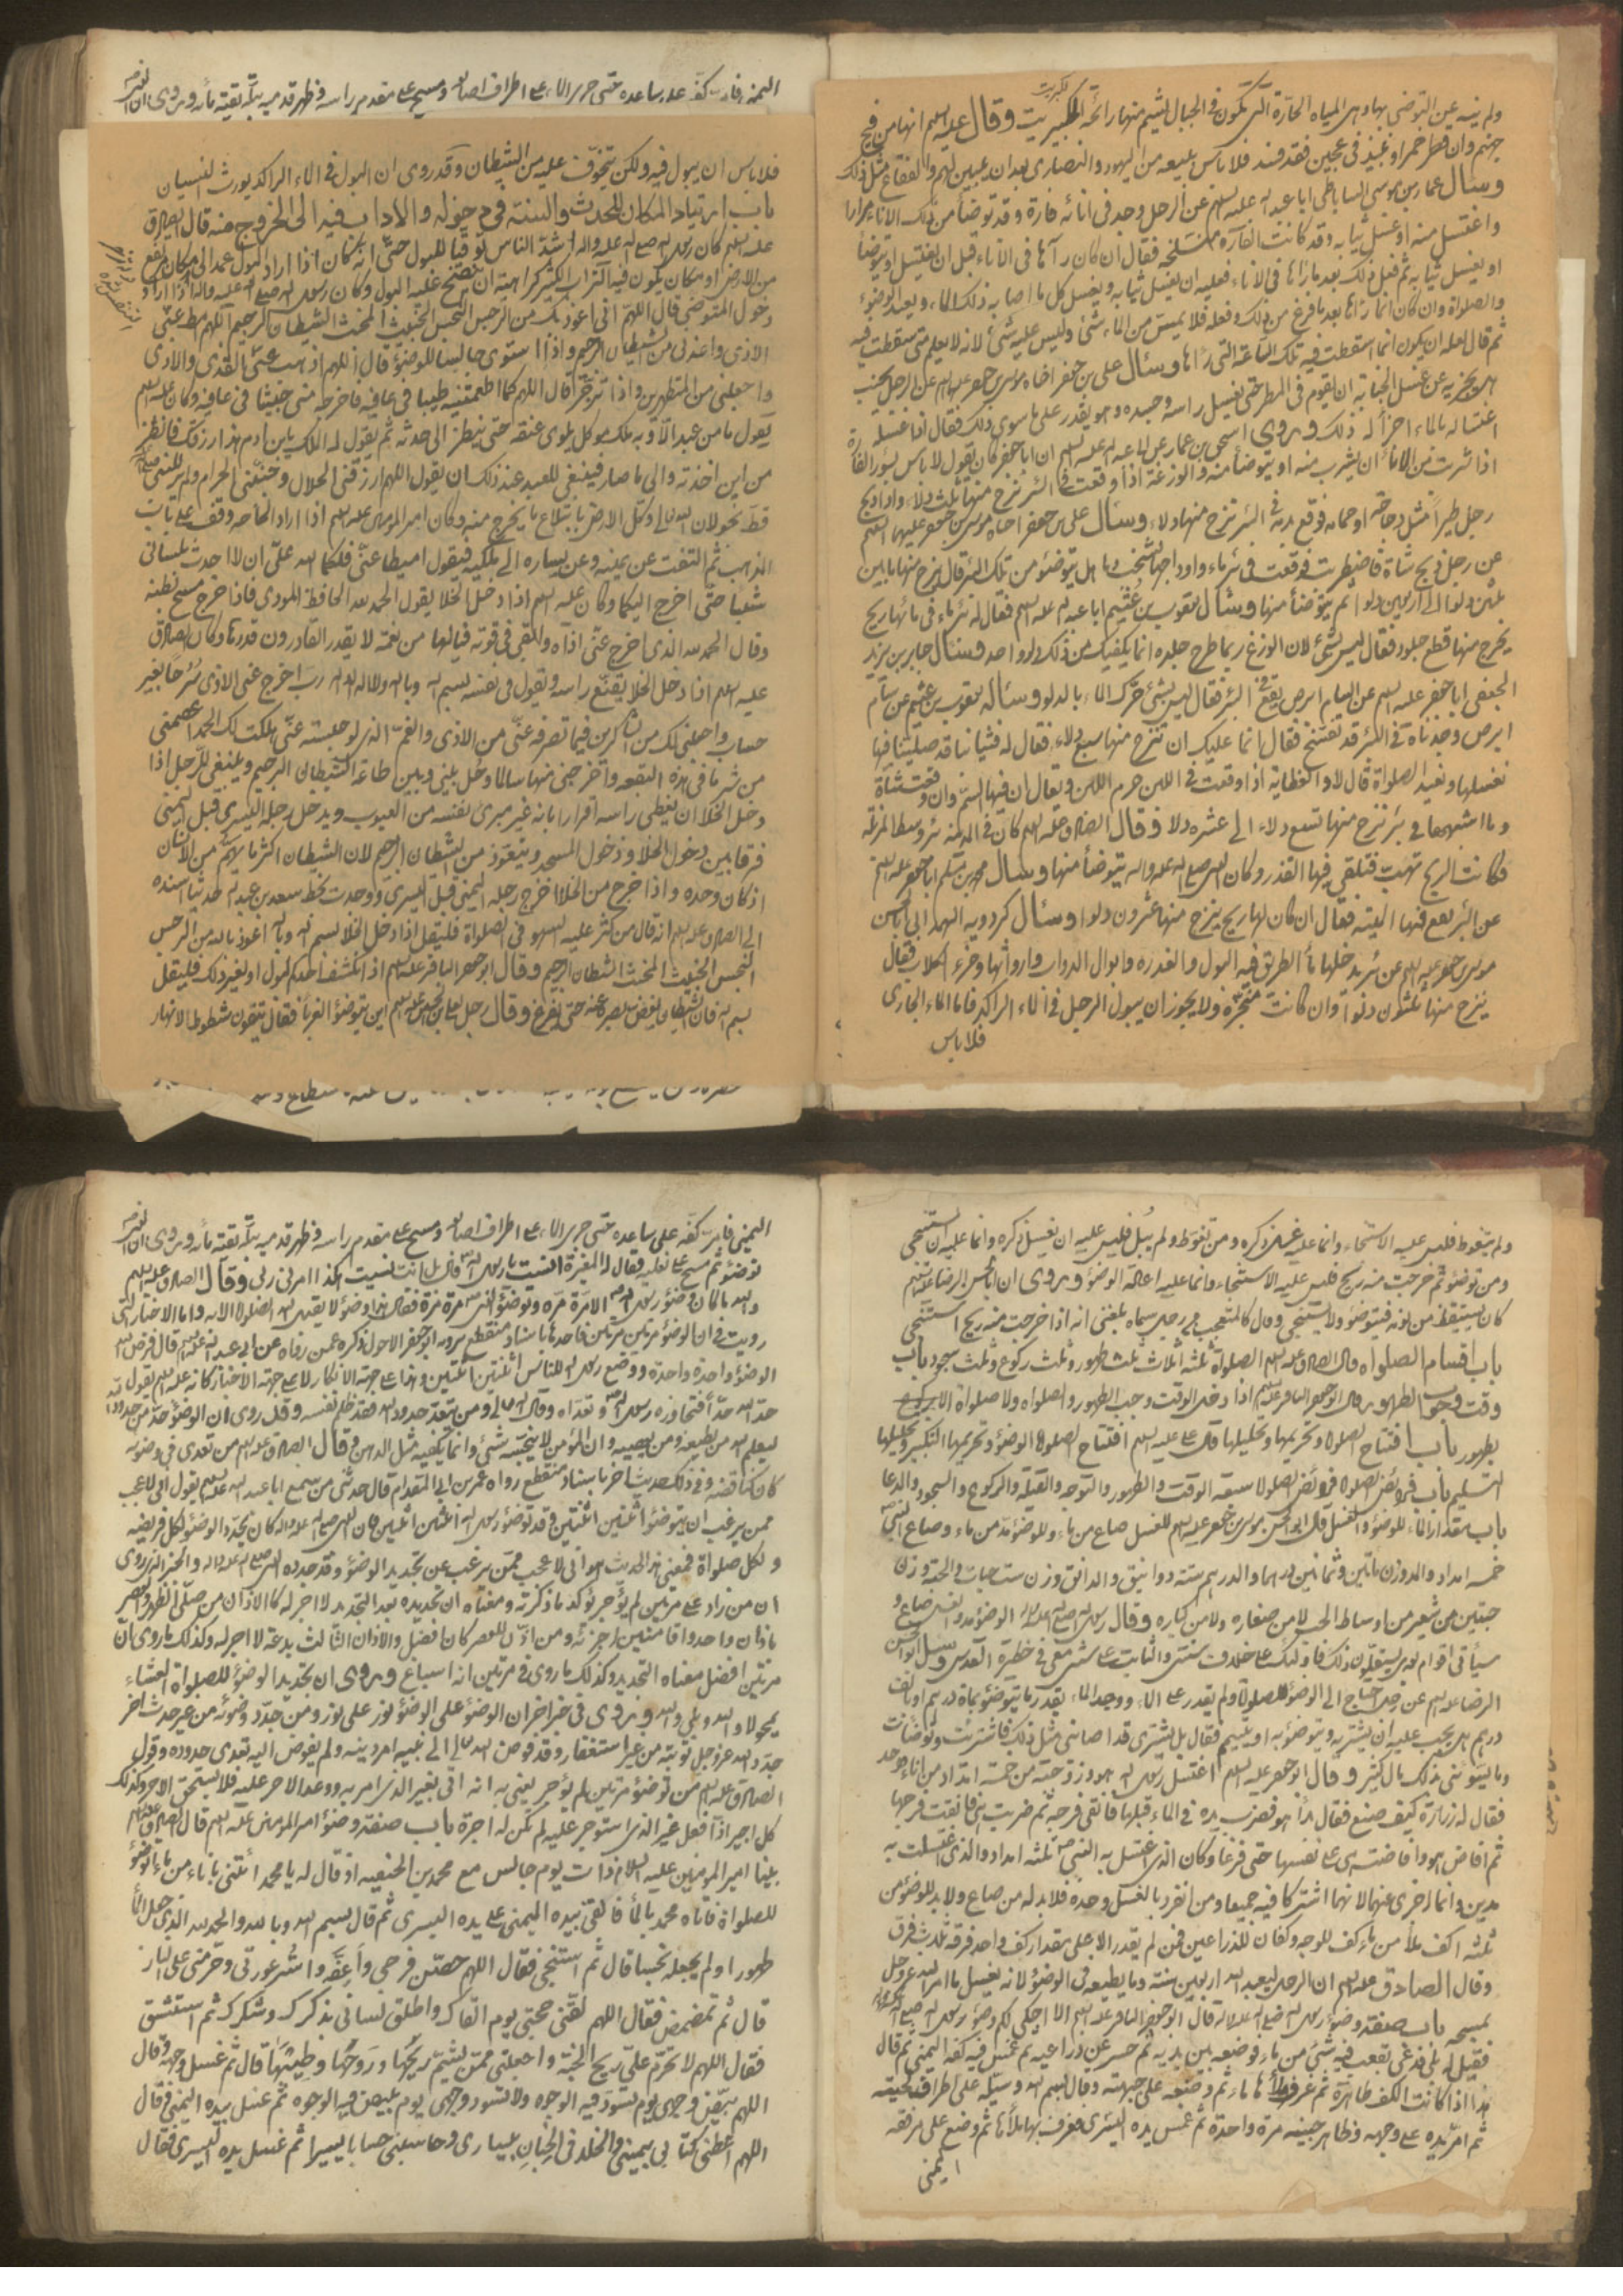 ولم ينه عن التوضي بها وهي المياه الحارة التي تكون في الجبال يشم منها رائحة الكبريت وقال عليه السلم انها من فيح
جهنم وان قطر خمر او نبيذ في عجين فقد فسد فلا باس ببيعه من اليهود والنصارى بعد ان يبين لهم والفقاع مثل ذلك
وسال عمار بن موسى الساباطي ابا عبد الله عليه السلم عن الرجل وجد في انائه فارة وقد توضأ من ذلك الاناء مرارا
واغتسل منه او غسل ثيابه وقد كانت الفارة منسلخة فقال ان كان رآها في الاناء قبل ان يغتسل او يتوضأ
او يغسل ثيابه ثم فعل ذلك بعد ما رآها في الاناء فعليه ان يغسل ثيابه ويغسل كل ما اصابه ذلك الماء ويعيد الوضوء
والصلوة وان كان انما رآها بعد ما فرغ من ذلك وفعله فلا يمس من الماء شئ وليس عليه شئ لانه لا يعلم متى سقطت فيه
ثم قال لعله ان يكون انما سقطت فيه تلك الساعة التي رآها وسئال علي بن جعفر اخاه موسى بن جعفر عليهما السلم عن الرجل يجنب
هل يجزيه عن غسل الجنابة ان يقوم في المطر حتى يغسل راسه وجسده وهو يقدر على ما سوى ذلك فقال اذا غسله
اغتساله بالماء اجزأه ذلك وروى اسحق بن عمار عن ابي عبد الله عليه السلم ان ابا جعفر كان يقول لا باس بسؤر الفارة
اذا شربت من الاناء ان يشرب منه او يتوضأ منه والوزغة اذا وقعت في البئر نزح منها ثلث دلاء واذا ذبح
رجل طيراً مثل دجاجة او حمامة فوقع بدمه في البئر نزح منها دلاء وسئال علي بن جعفر اخاه موسى بن جعفر عليهما السلم
عن رجل ذبح شاة فاضطربت فوقعت في بئر ماء واوداجها تشخب دما هل يتوضؤ من تلك البئر قال ينزح منها ما بين
ثلثين دلوا الى اربعين دلوا ثم يتوضأ منها وسئال يعقوب بن عثيم ابا عبد الله عليه السلم فقال له بئر ماء في مائها ريح
يخرج منها قطع جلود فقال ليس بشئ لان الوزغ ربما طرح جلده انما يكفيك من ذلك دلو واحد وسئال جابر بن يزيد
الجعفي ابا جعفر عليه السلم عن السام ابرص يقع في البئر فقال ليس بشئ حرك الماء بالدلو وسئاله يعقوب بن عثيم عن سام
ابرص وجدناه في البئر قد تفسخ فقال انما عليك ان تنزح منها سبع دلاء فقال له فثيابنا قد صلينا فيها
نغسلها ونعيد الصلوة قال لا والعظاية اذا وقعت في اللبن حرم اللبن ويقال ان فيها السم وان وقعت شاة
وما اشبهها في بئر نزح منها تسع دلاء الى عشرة دلاء وقال الصادق عليه السلم كان في المدينة بئر وسط المزبلة
فكانت الريح تهب فتلقي فيها القذر وكان النبي صلى الله عليه واله يتوضأ منها وسئال محمد بن مسلم ابا جعفر عليه السلم
عن البئر يقع فيها الميتة فقال ان كان لها ريح ينزح منها عشرون دلوا وسئال كردويه الهمداني ابا الحسن
موسى بن جعفر عليه السلم عن بئر يدخلها ماء الطريق فيه البول والعذرة وابوال الدواب واروائها وخرء الكلاب فقال
ينزح منها ثلثون دلواً وان كانت مبخرة ولا يجوز ان يبول الرجل في الماء الراكد فاما الماء الجاري
فلا باس
اليمنى فارسـ كفه على ساعده حتى جرى الماء على اطراف اصابعه ومسح على مقدم راسه وظهر قدميه ببلة بقية مائه وروى ان
فلا باس ان يبول فيه ولكن يتخوف عليه من الشيطان وقد روى ان البول في الماء الراكد يورث النسيان
باب ارتياد المكان للحدث والسنة في دخوله والاداب فيه الى الخروج منه قال الصادق
عليه السلم كان رسول الله صلى الله عليه واله اشد الناس توقيا للبول حتى انه كان اذا اراد البول عمد الى مكان مرتفع
من الارض او مكان يكون فيه التراب الكثير كراهية ان ينضح عليه البول وكان رسول الله صلى الله عليه واله اذا اراد
دخول المتوضى قال اللهم اني اعوذ بك من الرجس النجس الخبيث المخبث الشيطان الرجيم اللهم امط عني
الاذى واعذني من الشيطان الرجيم واذا استوى جالسا للوضؤ قال اللهم اذهب عني القذى والاذى
واجعلني من المتطهرين واذا تزحر قال اللهم كما اطعمتنيه طيبا في عافية فاخرجه مني خبيثا في عافية وكان عليه السلم
يقول ما من عبد الا وبه ملك موكل يلوى عنقه حتى ينظر الى حدثه ثم يقول له الملك يا بن ادم هذا رزقك فانظر
من اين اخذته والى ما صار فينبغي للعبد عند ذلك ان يقول اللهم ارزقني الحلال وجنبني الحرام ولم ير للنبي
قط نجو لان الله تعالى وكل الارض بابتلاع ما يخرج منه وكان امير المومنين عليه السلم اذا اراد الحاجة وقف على باب
المذهب ثم التفت عن يمينه وعن يساره الى ملكيه فيقول اميطا عني فلكما الله علي ان لا احدث بلساني
شيئا حتى اخرج اليكما وكان عليه السلم اذا دخل الخلا يقول الحمد لله الحافظ المودى فاذا خرج مسح بطنه
وقال الحمد لله الذي اخرج عني اذاه وابقى في قوته فيا لها من نعمة لا يقدر القادرون قدرها وكان الصادق
عليه السلم اذا دخل الخلا يقنع راسه ويقول في نفسه بسم الله وبالله ولا اله الا الله رب اخرج عني الاذى سرحا بغير
حساب واجعلني لك من الشاكرين فيما تصرفه عني من الاذى والغم الذي لو حبسته عني هلكت لك الحمد اعصمني
من شر ما في هذه البقعة واخرجني منها سالما وحل بيني وبين طاعة الشيطان الرجيم وينبغي للرجل اذا
دخل الخلا ان يغطي راسه اقرارا بانه غير مبرئ نفسه من العيوب ويدخل رجله اليسرى قبل اليمنى
فرقا بين دخول الخلا ودخول المسجد ويتعوذ من الشيطان الرجيم لان الشيطان اكثر ما يهم من الانسان
اذا كان وحده واذا خرج من الخلا اخرج رجله اليمنى قبل اليسرى ووجدت بخط سعد بن عبد الله حديثا اسنده
الى الصادق عليه السلم انه قال من كثر عليه السهو في الصلوة فليقل اذا دخل الخلا بسم الله وبالله اعوذ بالله من الرجس
النجس الخبيث المخبث الشيطان الرجيم وقال ابو جعفر الباقر عليه السلم اذا انكشف احدكم لبول او لغير ذلك فليقل
بسم الله فان الشيطان يغض بصره عنه حتى يفرغ وقال رجل لعلي بن الحسين عليه السلم اين يتوضؤ الغرباء فقال يتقون شطوط الانهار
ولم يتغوط فليس عليه الاستنجاء وانما عليه غسل ذكره ومن تغوط ولم يبل فليس عليه ان يغسل ذكره وانما عليه ان يستنجي
ومن توضؤ ثم خرجت منه ريح فليس عليه الاستنجاء وانما عليه اعادة الوضؤ وروى ان ابا الحسن الرضا عليه السلم
كان يستيقظ من نومه فيتوضؤ ولا يستنجي وقال كالمتعجب من رجل سماه بلغني انه اذا خرجت منه ريح استنجى
باب اقسام الصلواة قال الصادق عليه السلم الصلواة ثلثة اثلاث ثلث طهور وثلث ركوع وثلث سجود باب
وقت وجوب الطهور قال ابو جعفر الباقر عليه السلم اذا دخل الوقت وجب الطهور والصلواة ولا صلواة الا
بطهور باب افتتاح الصلواة وتحريمها وتحليلها قال علي عليه السلم افتتاح الصلواة الوضؤ وتحريمها التكبير وتحليلها
التسليم باب فرائض الصلواة فرائض الصلواة سبعة الوقت والطهور والتوجه والقبلة والركوع والسجود والدعا
باب مقدار الماء للوضؤ والغسل قال ابو الحسن موسى بن جعفر عليه السلم للغسل صاع من ماء وللوضؤ مد من ماء وصاع النبي
خمسة امداد والمد وزن مائتين وثمانين درهما والدرهم ستة دوانيق والدانق وزن ست حبات والحبة وزن
حبتين من شعير من اوساط الحب لا من صغاره ولا من كباره وقال رسول الله صلى الله عليه واله الوضؤ مد والغسل صاع و
سيأتي اقوام بعدي يستقلون ذلك فاولئك على خلاف سنتي والثابت على سنتي معي في حظيرة القدس وسئل ابو الحسن
الرضا عليه السلم عن رجل احتاج الى الوضؤ للصلواة ولم يقدر على الماء ووجد الماء بقدر ما يتوضؤ بمائة درهم او بالف
درهم هل يجب عليه ان يشتريه ويتوضؤ به او يتيمم فقال بل يشتري قد اصابني مثل ذلك فاشتريت وتوضأت
وما يسؤني بذلك مال كثير وقال ابو جعفر عليه السلم اغتسل رسول الله هو وزوجته من خمسة امداد من اناء واحد
فقال له زرارة كيف صنع فقال بدأ هو فضرب يده في الماء قبلها فانقى فرجه ثم ضربت هي فانقت فرجها
ثم افاض هو وافاضت هي على نفسها حتى فرغا وكان الذي اغتسل به النبي ثلثة امداد والذي اغتسلت به
مدين وانما اجزى عنهما لانهما اشتركا فيه جميعا ومن انفرد بالغسل وحده فلا بد له من صاع ولا بد للوضؤ من
ثلثة اكف ملأ من ماء كف للوجه وكفان للذراعين فمن لم يقدر الا على مقدار كف واحد فرقه ثلاث فرق
وقال الصادق عليه السلم ان الرجل ليعبد الله اربعين سنة وما يطيعه في الوضؤ لانه يغسل ما امر الله عز وجل
بمسحه باب صفة وضؤ رسول الله صلى الله عليه واله قال ابو جعفر الباقر عليه السلم الا احكي لكم وضؤ رسول الله صلى الله عليه
فقيل له بلى فدعى بقعب فيه شئ من ماء فوضعه بين يديه ثم حسر عن ذراعيه ثم غمس فيه كفه اليمنى ثم قال
هذا اذا كانت الكف طاهرة ثم غرف ملأها ماء ثم وضعه على جبهته وقال بسم الله وسيله على اطراف لحيته
ثم امر يده على وجهه وظاهر جبينه مرة واحدة ثم غمس يده اليسرى فغرف بها ملأها ثم وضع على مرفقه
اليمنى
اليمنى فامر كفه على ساعده حتى جرى الماء على اطراف اصابعه ومسح على مقدم راسه وظهر قدميه ببلة بقية مائه وروى ان
توضؤ ثم مسح على نعليه فقال له المغيرة انسيت يا رسول الله قال بل انت نسيت هكذا امرني ربي وقال الصادق عليه السلم
والله ما كان وضؤ رسول الله الا مرة مرة وتوضؤ النبي مرة مرة فقال هذا وضؤ لا يقبل الله الصلواة الا به واما الاخبار التي
رويت في ان الوضؤ مرتين مرتين فاحدها باسناد منقطع يرويه ابو جعفر الاحول ذكره عمن رواه عن ابي عبد الله عليه السلم قال فرض الله
الوضؤ واحدة واحدة ووضع رسول الله للناس اثنتين اثنتين وهذا على جهة الانكار لا على جهة الاخبار كانه عليه السلم يقول
حد الله حداً فتجاوزه رسول الله وتعداه وقال الله تعالى ومن يتعد حدود الله فقد ظلم نفسه وقد روى ان الوضؤ حد من حدود الله
ليعلم الله من يطيعه ومن يعصيه وان المؤمن لا ينجسه شئ وانما يكفيه مثل الدهن وقال الصادق عليه السلم من تعدى في وضوئه
كان كناقضه وفي ذلك حديث اخر باسناد منقطع رواه عمرو بن ابي المقدام قال حدثني من سمع ابا عبد الله عليه السلم يقول اني لاعجب
ممن يرغب ان يتوضؤ اثنتين اثنتين وقد توضؤ رسول الله اثنتين اثنتين فان النبي صلى الله عليه واله كان يجدد الوضؤ لكل فريضة
ولكل صلواة فمعنى هذا الحديث هو اني لاعجب ممن يرغب عن تجديد الوضؤ وقد جدده النبي صلى الله عليه واله والخبر الذي روى
ان من زاد على مرتين لم يؤجر يؤكد ما ذكرته ومعناه ان تجديده بعد التجديد لا اجر له كالاذان من صلى الظهر والعصر
باذان واحد واقامتين اجزئه ومن اذن للعصر كان افضل والاذان الثالث بدعة لا اجر له وكذلك ما روى ان
مرتين افضل معناه التجديد وكذلك ما روى في مرتين انه اسباغ وروى ان تجديد الوضؤ للصلواة العشاء
يمحو لا والله وبلى والله وروى في خبر اخر ان الوضؤ على الوضؤ نور على نور ومن جدد وضوئه من غير حدث اخر
جدد الله عز وجل توبته من غير استغفار وقد فوض الله تعالى الى نبيه امر دينه ولم يفوض اليه تعدى حدوده وقول
الصادق عليه السلم من توضؤ مرتين لم يؤجر يعني به انه اتى بغير الذي امر به ووعد الاجر عليه فلا يستحق الاجر وكذلك
كل اجير اذا فعل غير الذي استوجر عليه لم تكن له اجرة باب صفة وضؤ امير المومنين عليه السلم قال الصادق عليه السلم
بينا امير المومنين عليه السلام ذات يوم جالس مع محمد بن الحنفيه اذ قال له يا محمد ائتني باناء من ماء اتوضؤ
للصلواة فاتاه محمد بالماء فالقى بيده اليمنى على يده اليسرى ثم قال بسم الله وبالله والحمد لله الذي جعل الماء
طهورا ولم يجعله نجسا قال ثم استنجى فقال اللهم حصن فرجي واعفه واستر عورتي وحرمني على النار
قال ثم تمضمض فقال اللهم لقني حجتي يوم القاك واطلق لساني بذكرك وشكرك ثم استنشق
فقال اللهم لا تحرم علي ريح الجنة واجعلني ممن يشم ريحها وروحها وطيبها قال ثم غسل وجهه وقال
اللهم بيض وجهي يوم تسود فيه الوجوه ولا تسود وجهي يوم تبيض فيه الوجوه ثم غسل يده اليمنى فقال
اللهم اعطني كتابي بيميني والخلد في الجنان بيساري وحاسبني حسابا يسيرا ثم غسل يده اليسرى فقال